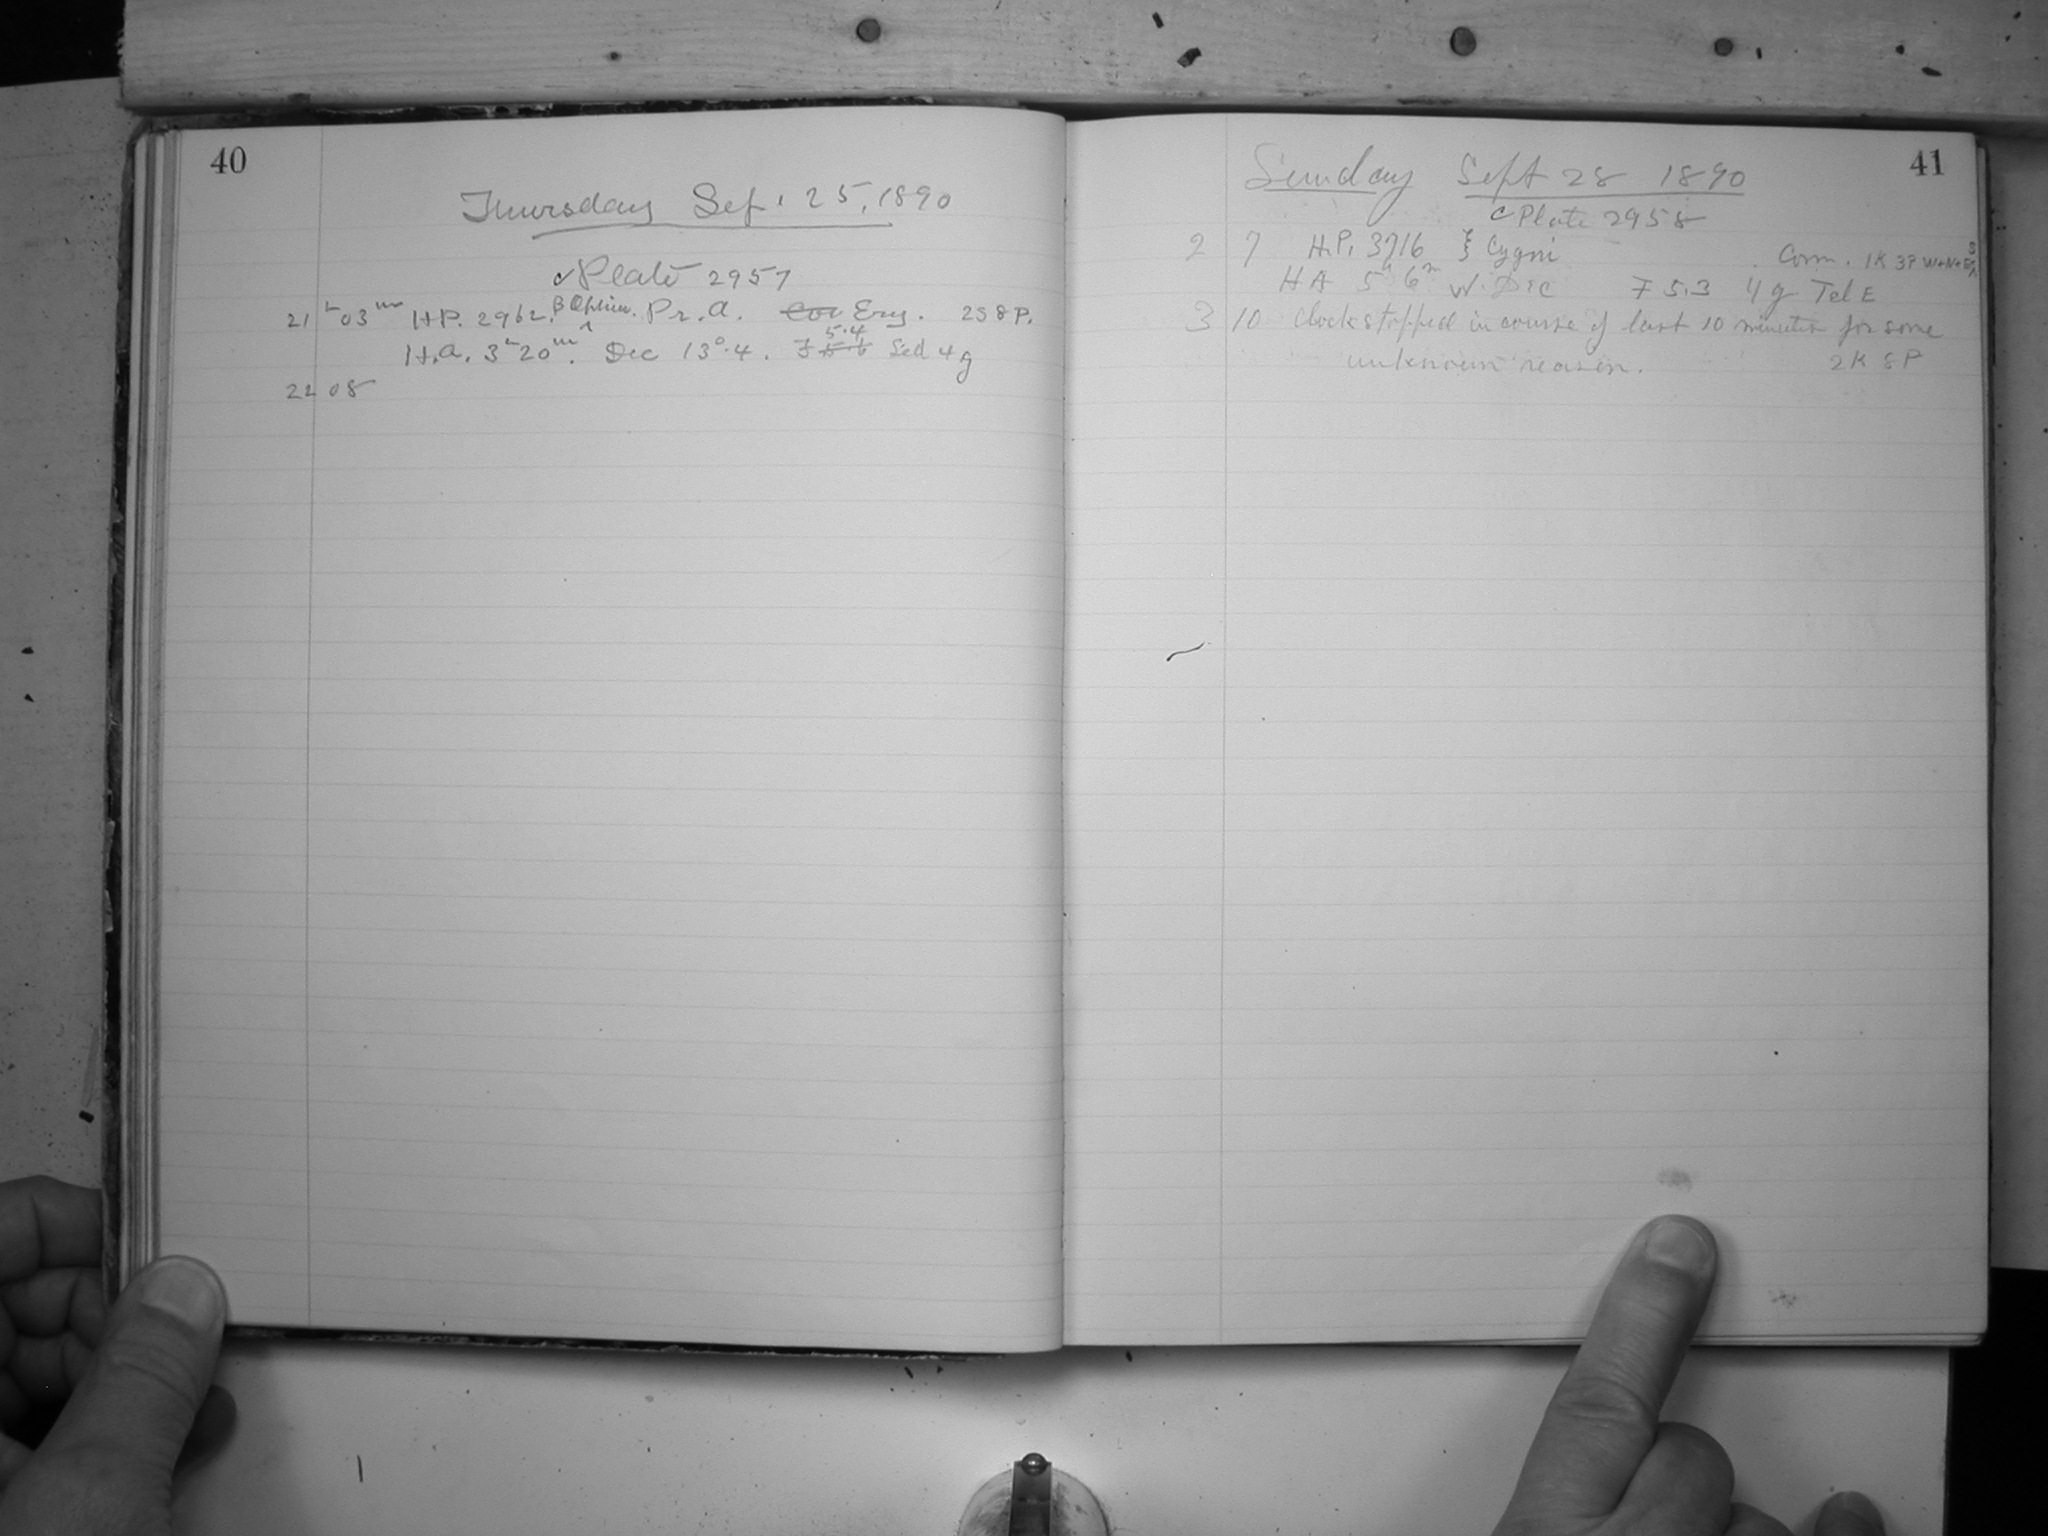 40
Thursday Sep. 25, 1890
c Plate 2957
21 h 03 m H.P. 2962. β Ophiu. Pr. a. Eng. 258 P.
H.A. 3 h 20 m. Dec 13°.4. F 5.4 Sed 4 g
22 08
41
Sunday Sept 28 1890
c Plate 2958
2 7 H.P. 3716 ξ Cygni Corr. 1K 3P W+N+
HA 5 h 6 m W. Dec F 5.3 4 g Tel E
3 10 Clock stopped in course of last 10 minutes for some
unknown reason. 2K 8P